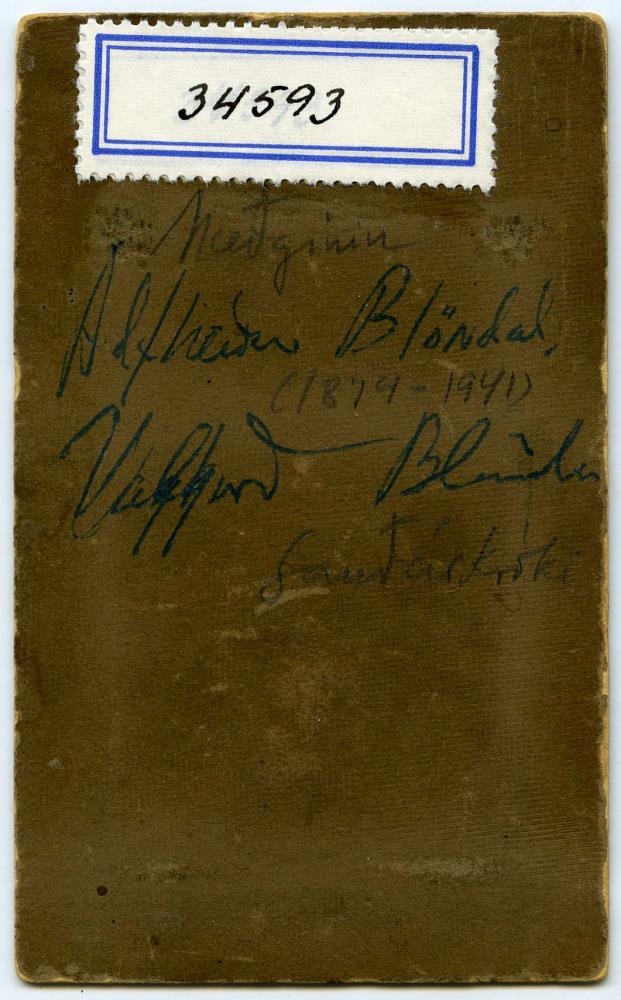 34593
Mæðginin
Álfheiður Blöndal,
(1879-1941)
Valgard Blöndal
Sauðárkróki